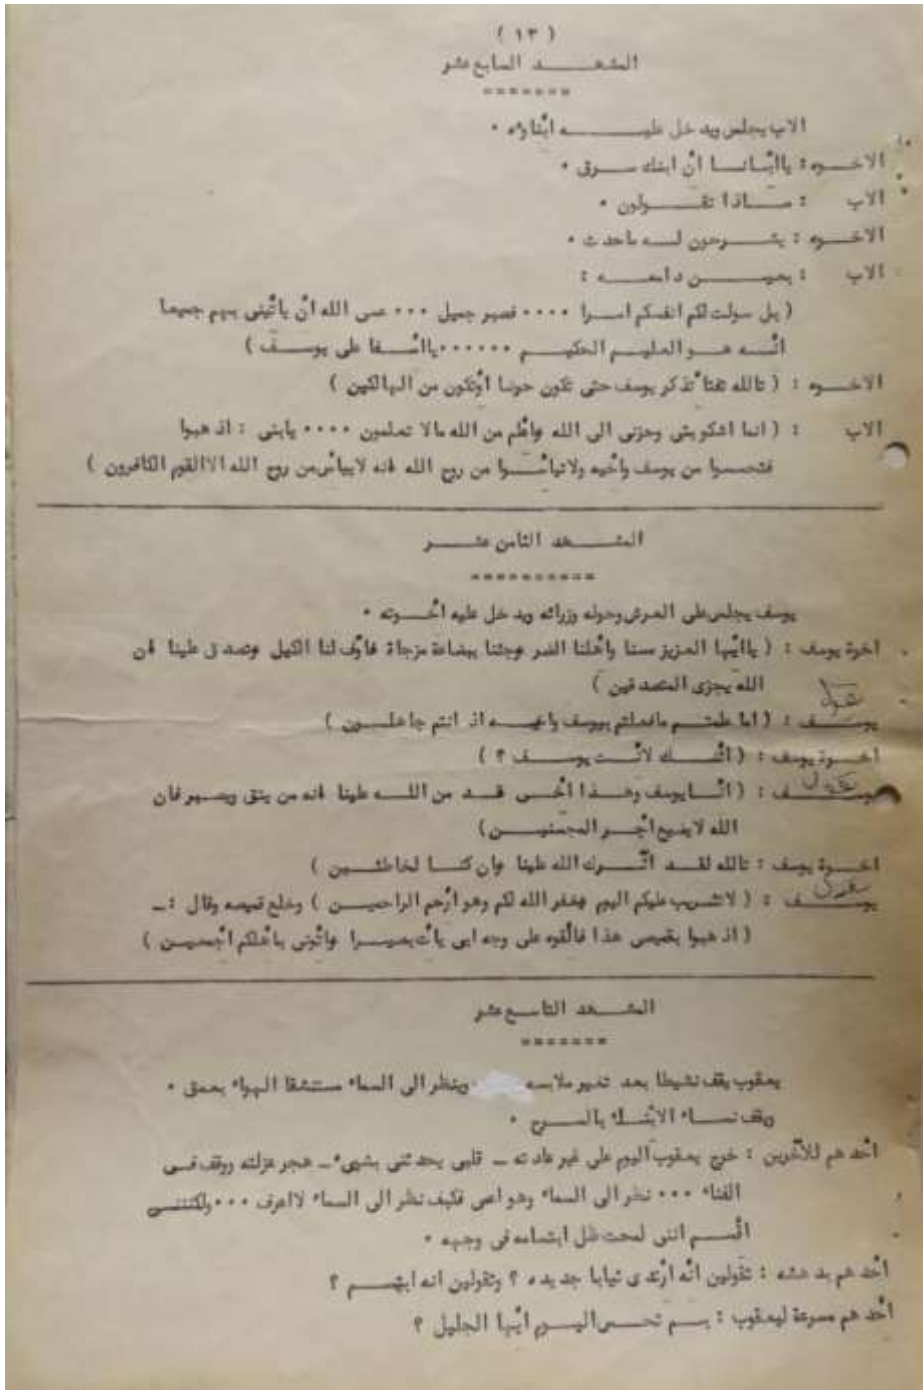 ( ١٣ )
المشهد السابع عشر
=======
الاب يجلس ويدخل عليه ابناؤه .
الاخوه : ياابانا ان ابنك سرق .
الاب : ماذا تقولون .
الاخوه : يشرحون له ماحدث .
الاب : بعين دامعه :
( بل سولت لكم انفسكم امرا .... فصبر جميل ... عسى الله أن يأتينى بهم جميعا
انه هو العليم الحكيم ...... ياأسفا على يوسف )
الاخوه : ( تالله تفتأ تذكر يوسف حتى تكون حرضا أوتكون من الهالكين )
الاب : ( انما اشكو بثى وحزنى الى الله وأعلم من الله مالا تعلمون .... يابنى : اذهبوا
فتحسسوا من يوسف وأخيه ولاتيأسوا من روح الله فانه لاييأس من روح الله الاالقوم الكافرون )
المشهد الثامن عشر
==========
يوسف يجلس على العرش وحوله وزرائه ويدخل عليه أخوته .
اخوة يوسف : ( ياأيها العزيز مسنا وأهلنا الضر وجئنا ببضاعة مزجاة فأوف لنا الكيل وتصدق علينا ان
الله يجزى المتصدقين )
يوسف : ( اما علمتم مافعلتم بيوسف واخيه اذ انتم جاهلون )
اخوة يوسف : ( أئنك لأنت يوسف ؟ )
يوسف : ( أنا يوسف وهذا أخى قد من الله علينا انه من يتق ويصبر فان
الله لايضيع أجر المحسنين )
اخوة يوسف : تالله لقد آثرك الله علينا وان كنا لخاطئين )
يوسف : ( لاتثريب عليكم اليوم يغفر الله لكم وهو أرحم الراحمين ) وخلع قميصه وقال :ـ
( اذهبوا بقميصى هذا فألقوه على وجه ابى يأت بصيرا وأتونى بأهلكم أجمعين )
المشهد التاسع عشر
=======
يعقوب يقف نشيطا بعد تغير ملابسه وينظر الى السماء مستنشقا الهواء بعمق .
وقف نساء الأبناء بالمسرح .
أحدهم للآخرين : خرج يعقوب اليوم على غير عادته ــ قلبى يحدثنى بشيىء ــ هجر عزلته ووقف فى
الفناء ... نظر الى السماء وهو اعمى فكيف نظر الى السماء لااعرف ... ولكننى
أقسم اننى لمحت ظل ابتسامه فى وجهه .
أحدهم بدهشه : تقولين أنه أرتدى ثيابا جديده ؟ وتقولين انه ابتسم ؟
أحدهم مسرعة ليعقوب : بم تحس اليوم أيها الجليل ؟